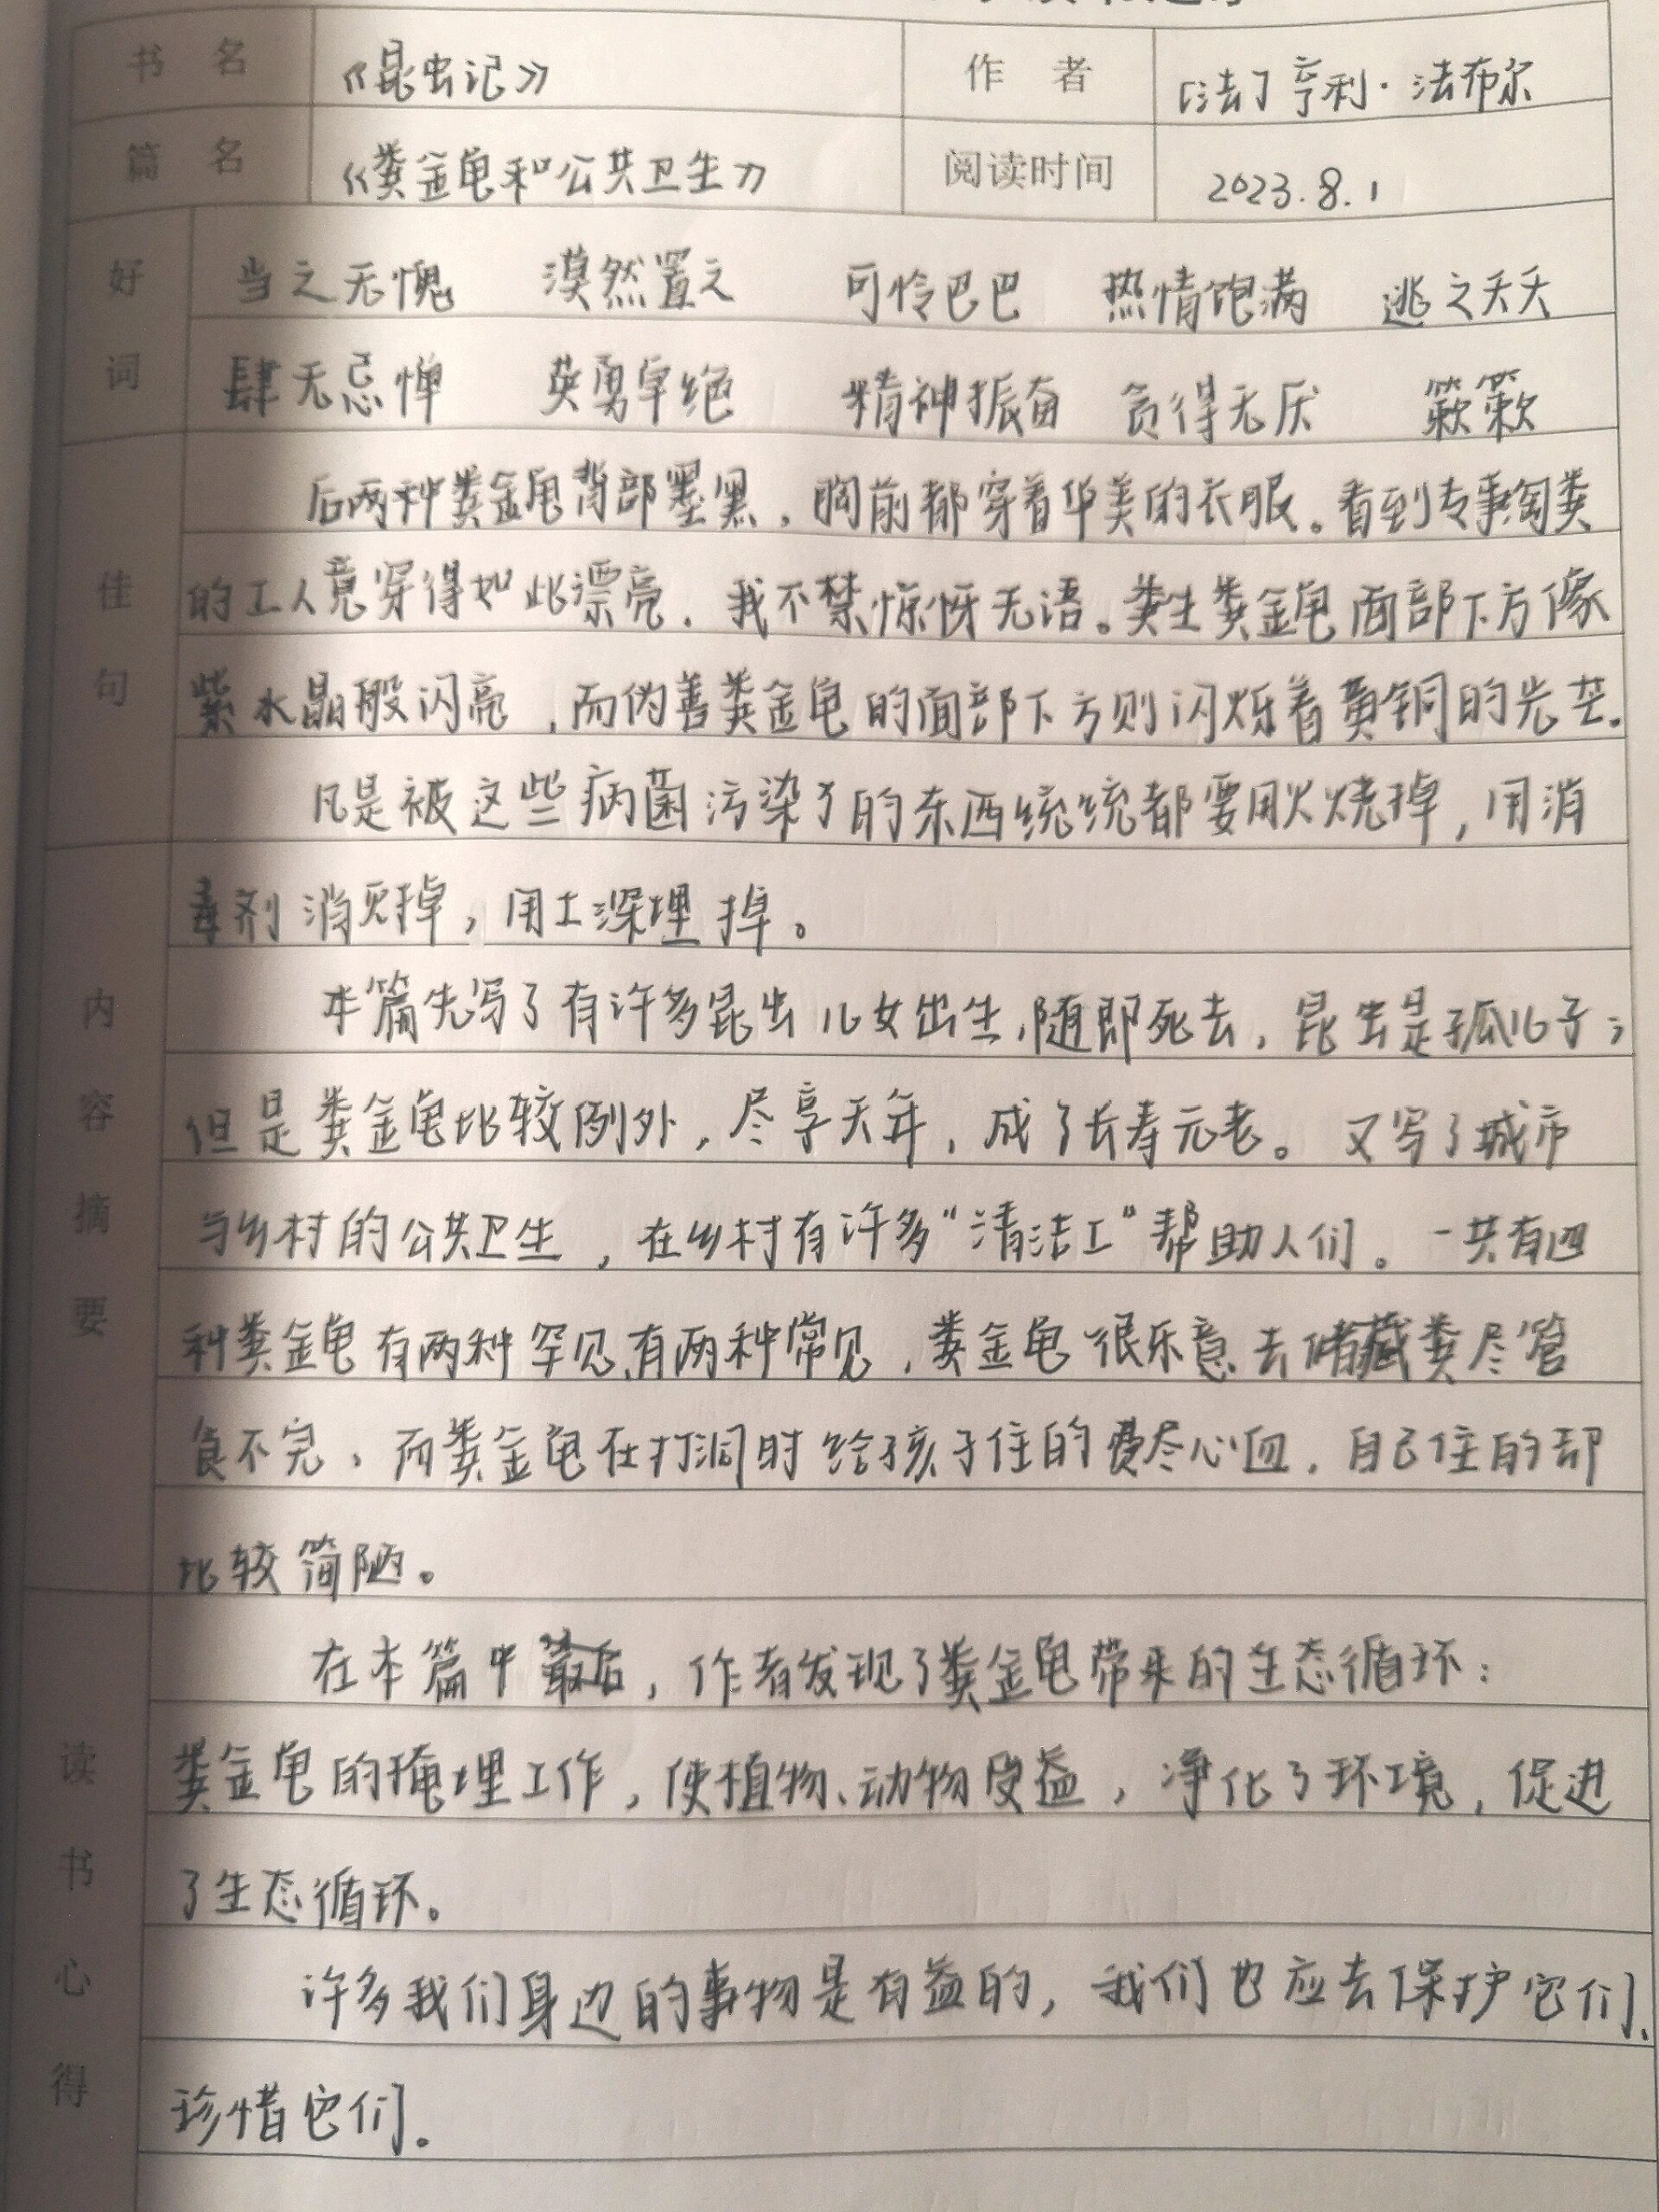 书 名 《昆虫记》 作 者 [法] 亨利·法布尔
篇 名 《粪金龟和公共卫生》 阅读时间 2023.8.1
好词 当之无愧 漠然置之 可怜巴巴 热情饱满 逃之夭夭
肆无忌惮 英勇卓绝 精神振奋 贪得无厌 簌簌
佳句 后两种粪金龟背部墨黑，胸前都穿着华美的衣服。看到专事淘粪
的工人竟穿得如此漂亮，我不禁惊讶无语。粪生粪金龟面部下方像
紫水晶般闪亮，而伪善粪金龟的面部下方则闪烁着黄铜的光芒。
凡是被这些病菌污染了的东西统统都要用火烧掉，用消
毒剂消灭掉，用土深埋掉。
内容摘要 本篇先写了有许多昆虫儿女出生，随即死去，昆虫是孤儿子；
但是粪金龟比较例外，尽享天年，成了长寿元老。又写了城市
与乡村的公共卫生，在乡村有许多“清洁工”帮助人们。一共有四
种粪金龟有两种罕见、有两种常见，粪金龟很乐意去储藏粪尽管
食不完，而粪金龟在打洞时给孩子住的费尽心血，自己住的却
比较简陋。
读书心得 在本篇中最后，作者发现了粪金龟带来的生态循环：
粪金龟的掩埋工作，使植物、动物受益，净化了环境，促进
了生态循环。
许多我们身边的事物是有益的，我们也应去保护它们、
珍惜它们。